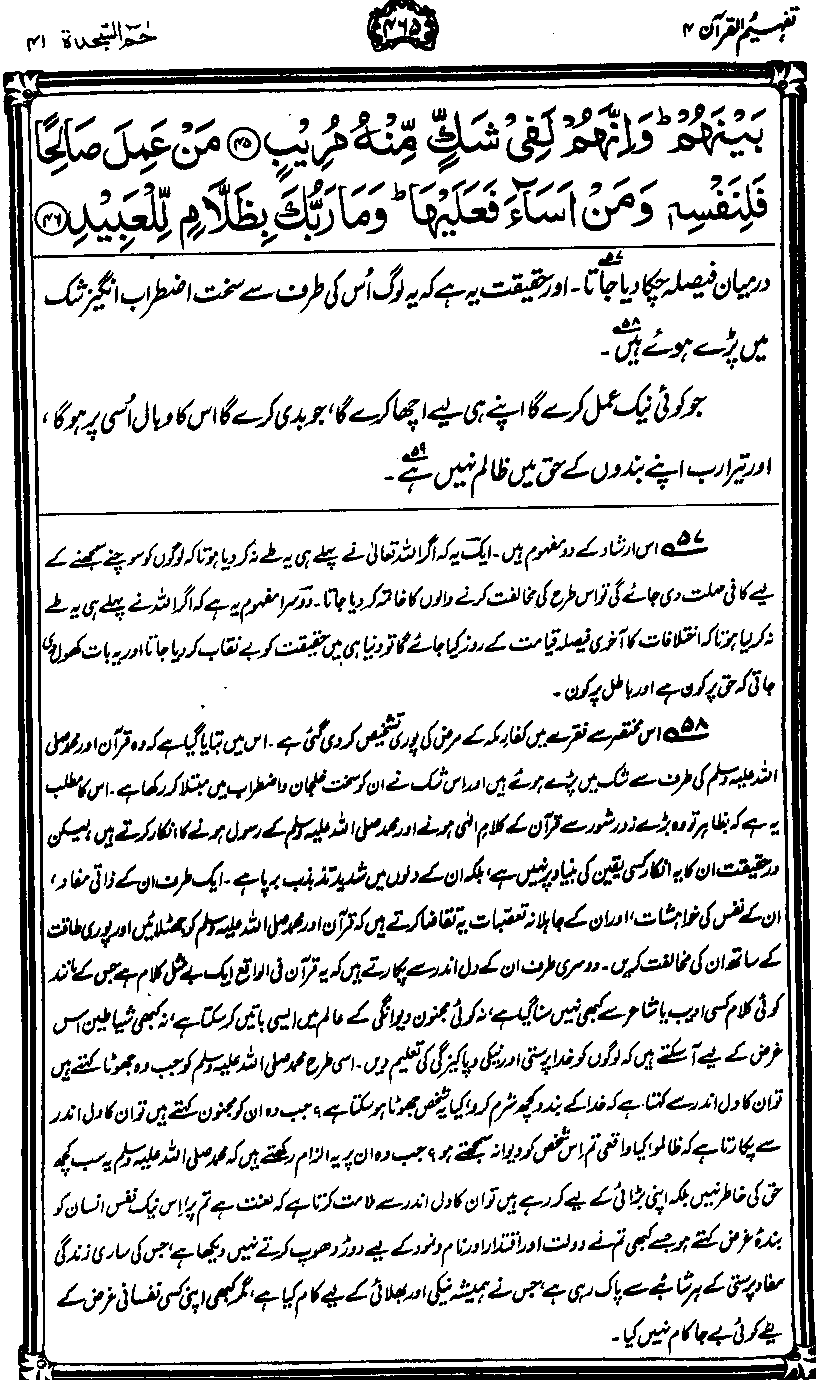 تفہیم القرآن ۴
۴۶۵
حٰمٓ السَّجْدَۃ ۴۱
بَيْنَهُمْ ؕ وَاِنَّهُمْ لَفِيْ شَكٍّ مِّنْهُ مُرِيْبٍ ﴿۴۵﴾ مَنْ عَمِلَ صَالِحًا
فَلِنَفْسِهٖ وَمَنْ اَسَآءَ فَعَلَيْهَا ؕ وَمَا رَبُّكَ بِظَلَّامٍ لِّلْعَبِيْدِ ﴿۴۶﴾
درمیان فیصلہ چکا دیا جاتا۵۷۔ اور حقیقت یہ ہے کہ یہ لوگ اُس کی طرف سے سخت اضطراب انگیز شک
میں پڑے ہوئے ہیں۵۸۔
جو کوئی نیک عمل کرے گا اپنے ہی لیے اچھا کرے گا، جو بدی کرے گا اس کا وبال اُسی پر ہوگا،
اور تیرا رب اپنے بندوں کے حق میں ظالم نہیں ہے۵۹۔
۵۷ اس ارشاد کے دو مفہوم ہیں۔ ایک یہ کہ اگر اللہ تعالیٰ نے پہلے ہی یہ طے نہ کر دیا ہوتا کہ لوگوں کو سوچنے سمجھنے کے
لیے کافی مہلت دی جائے گی تو اس طرح کی مخالفت کرنے والوں کا خاتمہ کر دیا جاتا۔ دوسرا مفہوم یہ ہے کہ اگر اللہ نے پہلے ہی یہ طے
نہ کر لیا ہوتا کہ اختلافات کا آخری فیصلہ قیامت کے روز کیا جائے گا تو دنیا ہی میں حقیقت کو بے نقاب کر دیا جاتا اور یہ بات کھول دی
جاتی کہ حق پر کون ہے اور باطل پر کون۔
۵۸ اس مختصر سے فقرے میں کفار مکہ کے مرض کی پوری تشخیص کر دی گئی ہے۔ اس میں بتایا گیا ہے کہ وہ قرآن اور محمد صلی
اللہ علیہ وسلم کی طرف سے شک میں پڑے ہوئے ہیں اور اس شک نے ان کو سخت خلجان و اضطراب میں مبتلا کر رکھا ہے۔ اس کا مطلب
یہ ہے کہ بظاہر تو وہ بڑے زور شور سے قرآن کے کلام الٰہی ہونے اور محمد صلی اللہ علیہ وسلم کے رسول ہونے کا انکار کرتے ہیں، لیکن
درحقیقت ان کا یہ انکار کسی یقین کی بنیاد پر نہیں ہے، بلکہ ان کے دلوں میں شدید تذبذب برپا ہے۔ ایک طرف ان کے ذاتی مفاد،
ان کے نفس کی خواہشات، اور ان کے جاہلانہ تعصبات یہ تقاضا کرتے ہیں کہ قرآن اور محمد صلی اللہ علیہ وسلم کو جھٹلائیں اور پوری طاقت
کے ساتھ ان کی مخالفت کریں۔ دوسری طرف ان کے دل اندر سے پکارتے ہیں کہ یہ قرآن فی الواقع ایک بے مثل کلام ہے جس کے مانند
کوئی کلام کسی ادیب یا شاعر سے کبھی نہیں سنا گیا ہے، نہ کوئی مجنون دیوانگی کے عالم میں ایسی باتیں کر سکتا ہے، نہ کبھی شیاطین اس
غرض کے لیے آ سکتے ہیں کہ لوگوں کو خدا پرستی اور نیکی و پاکیزگی کی تعلیم دیں۔ اسی طرح محمد صلی اللہ علیہ وسلم کو جب وہ جھوٹا کہتے ہیں
تو ان کا دل اندر سے کہتا ہے کہ خدا کے بندو کچھ شرم کرو، کیا یہ شخص جھوٹا ہو سکتا ہے؟ جب وہ ان کو مجنون کہتے ہیں تو ان کا دل اندر
سے پکارتا ہے کہ ظالمو! کیا واقعی تم اِس شخص کو دیوانہ سمجھتے ہو؟ جب وہ ان پر یہ الزام رکھتے ہیں کہ محمد صلی اللہ علیہ وسلم یہ سب کچھ
حق کی خاطر نہیں بلکہ اپنی بڑائی کے لیے کر رہے ہیں تو ان کا دل اندر سے ملامت کرتا ہے کہ لعنت ہے تم پر، اِس نیک نفس انسان کو
بندۂ غرض کہتے ہو جسے کبھی تم نے دولت اور اقتدار اور نام و نمود کے لیے دوڑ دھوپ کرتے نہیں دیکھا ہے، جس کی ساری زندگی
مفاد پرستی کے ہر شائبے سے پاک رہی ہے، جس نے ہمیشہ نیکی اور بھلائی کے لیے کام کیا ہے، مگر کبھی اپنی کسی نفسانی غرض کے
لیے کوئی بے جا کام نہیں کیا۔